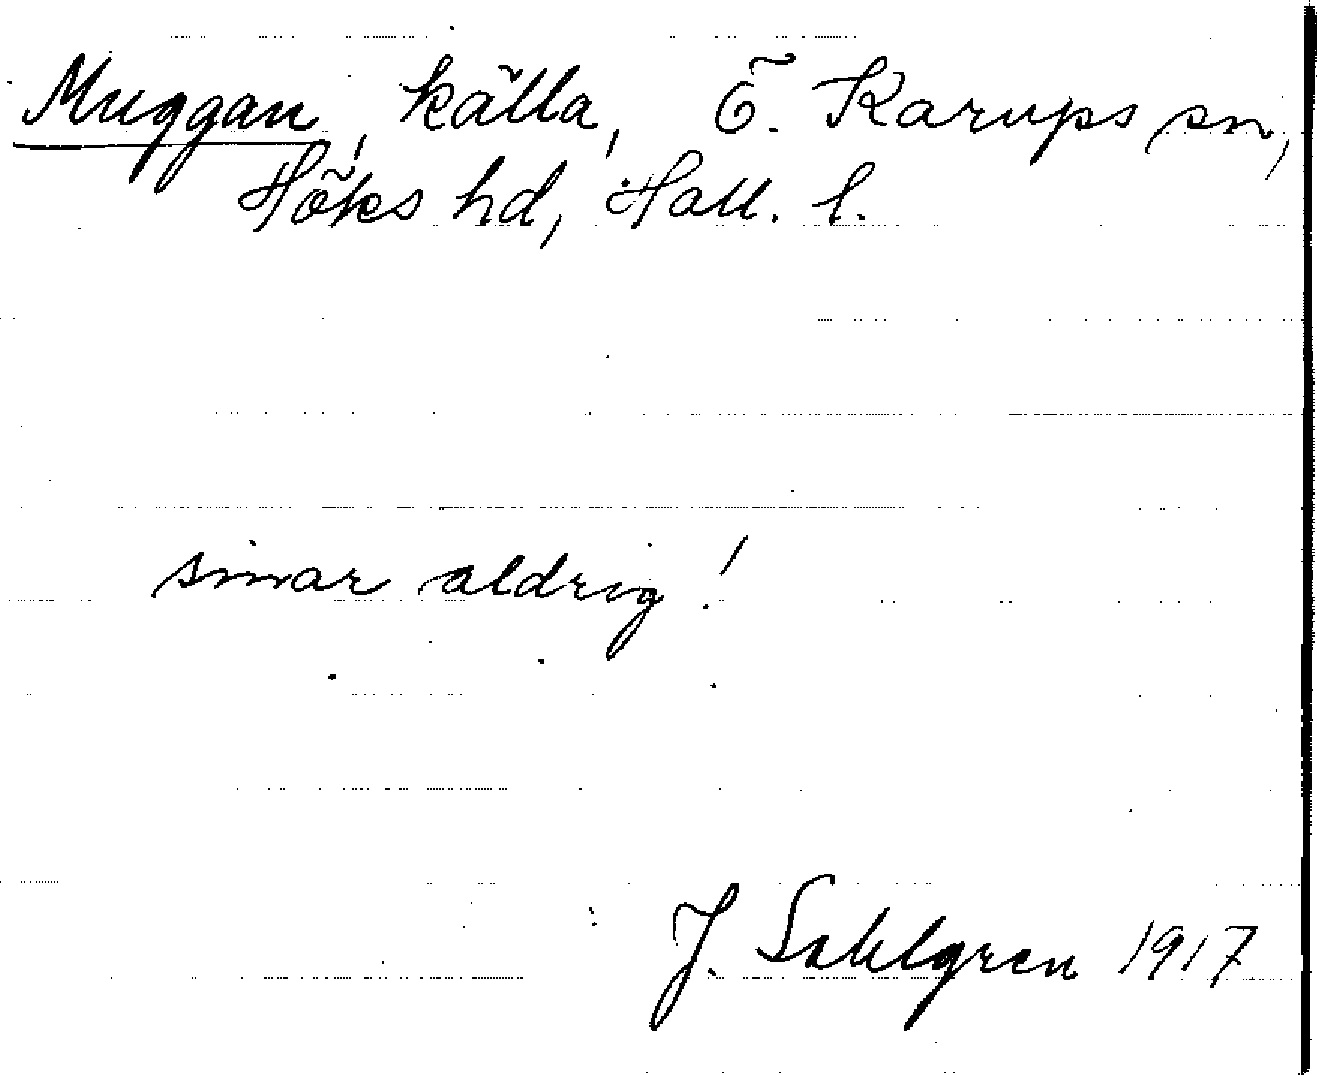 Muggan, källa, Ö. Karups sn,
Höks hd, Hall. l.
sinar aldrig!
J. Sahlgren 1917